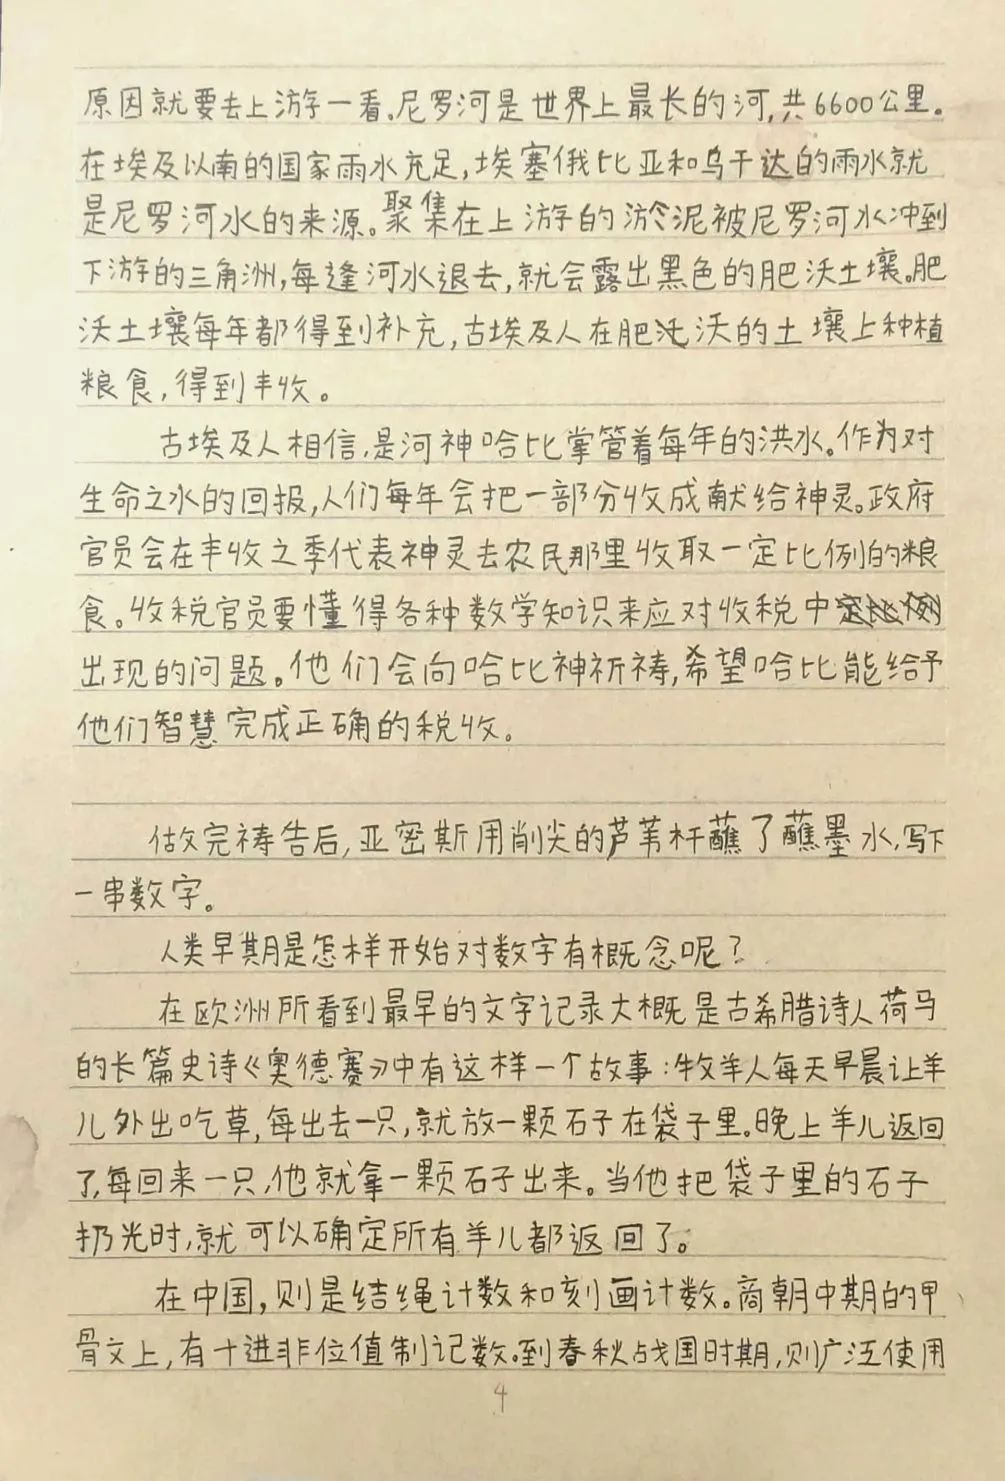 原因就要去上游一看。尼罗河是世界上最长的河,共6600公里。
在埃及以南的国家雨水充足,埃塞俄比亚和乌干达的雨水就
是尼罗河水的来源。聚集在上游的淤泥被尼罗河水冲到
下游的三角洲,每逢河水退去,就会露出黑色的肥沃土壤。肥
沃土壤每年都得到补充,古埃及人在肥沃的土壤上种植
粮食,得到丰收。
古埃及人相信,是河神哈比掌管着每年的洪水。作为对
生命之水的回报,人们每年会把一部分收成献给神灵。政府
官员会在丰收之季代表神灵去农民那里收取一定比例的粮
食。收税官员要懂得各种数学知识来应对收税中
出现的问题。他们会向哈比神祈祷,希望哈比能给予
他们智慧完成正确的税收。
做完祷告后,亚密斯用削尖的芦苇杆蘸了蘸墨水,写下
一串数字。
人类早期是怎样开始对数字有概念呢?
在欧洲所看到最早的文字记录大概是古希腊诗人荷马
的长篇史诗《奥德赛》中有这样一个故事:牧羊人每天早晨让羊
儿外出吃草,每出去一只,就放一颗石子在袋子里。晚上羊儿返回
了,每回来一只,他就拿一颗石子出来。当他把袋子里的石子
扔光时,就可以确定所有羊儿都返回了。
在中国,则是结绳计数和刻画计数。商朝中期的甲
骨文上,有十进非位值制记数。到春秋战国时期,则广泛使用
4